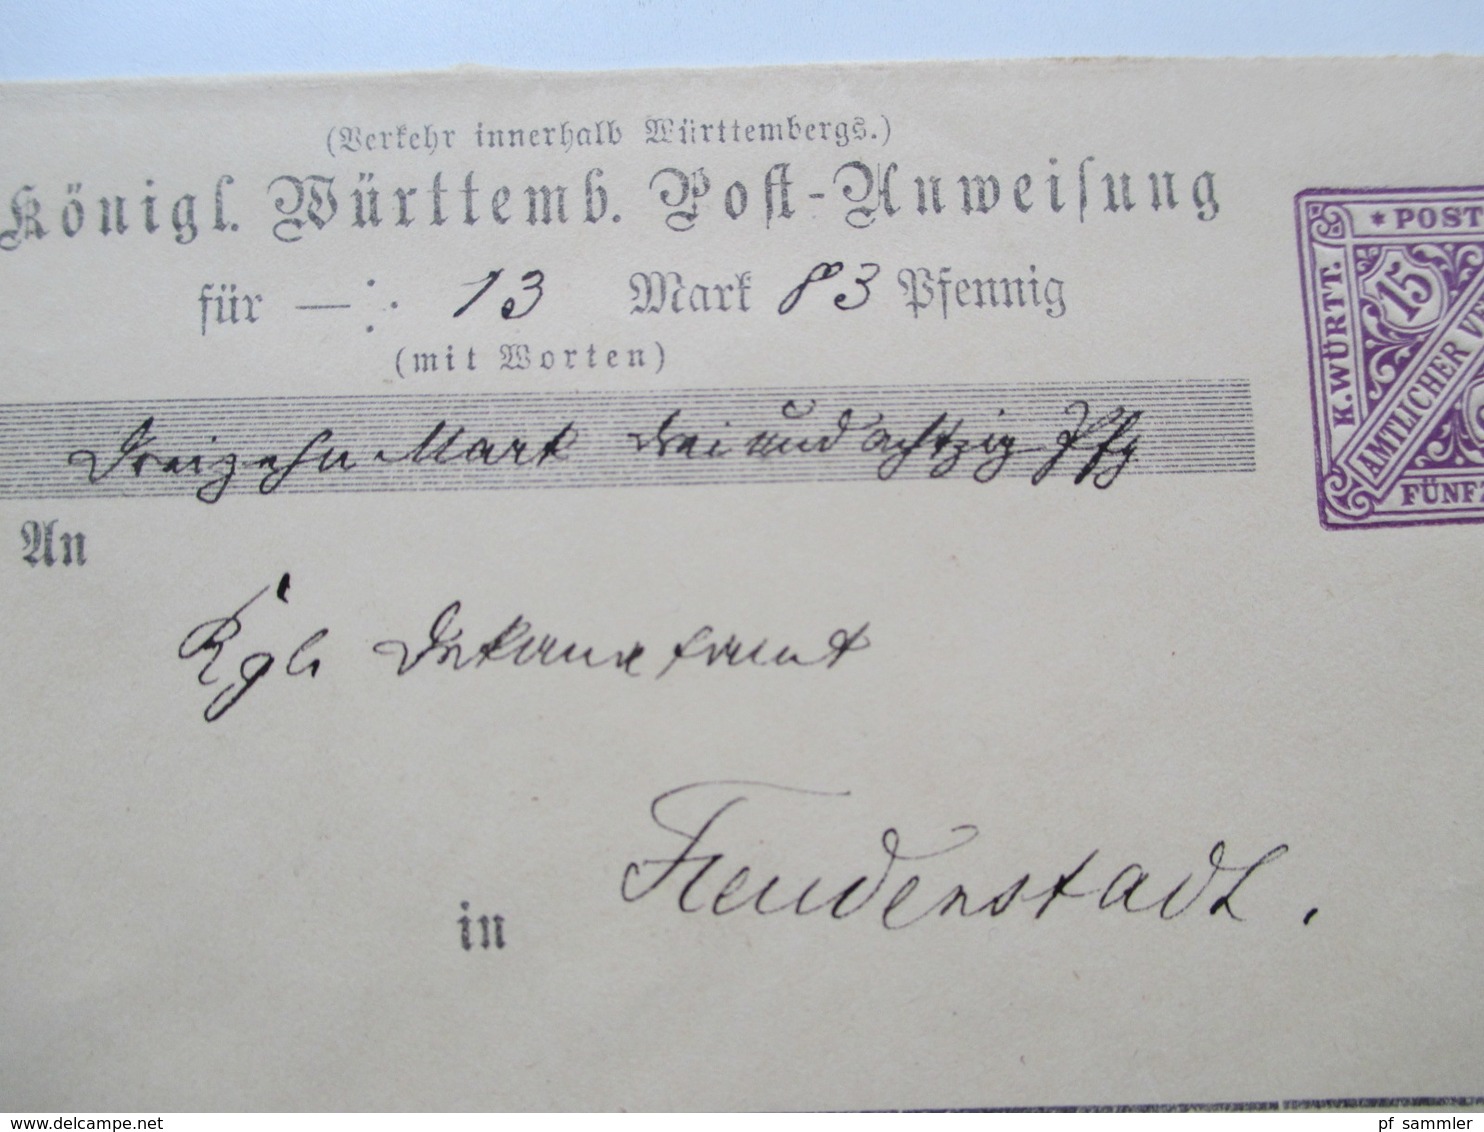 (Verkehr innerhalb Württembergs.)
Königl. Württemb. Post-Anweisung
für — 13 Mark 83 Pfennig
(mit Worten)
Dreizehn Mark drei und achtzig Pfg
An
Kgl. Dekanatamt
in Freudenstadt.
* POST
K. WÜRTT.
15
AMTLICHER V
FÜNFZ
www.delcampe.net
pf_sammler